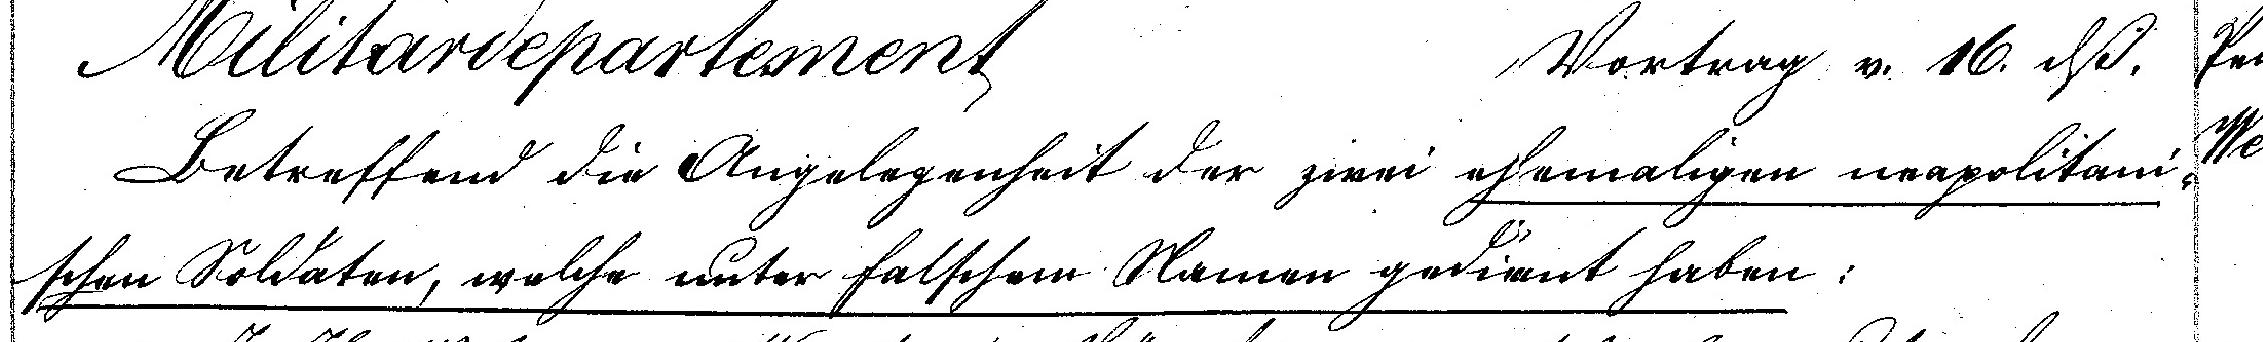 Militärdepartement Vortrag v. 16. dß.
Betreffend die Angelegenheit der zwei ehemaligen neapolitani-
schen Soldaten, welche unter falschem Namen gedient haben: